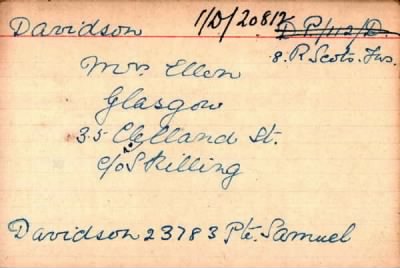 Davidson 1/D/20812 D.P/112/D.
8. R. Scots. Fus.
Mrs. Ellen
Glasgow
35 Clelland St.
c/o Skilling
Davidson 23783 Pte. Samuel